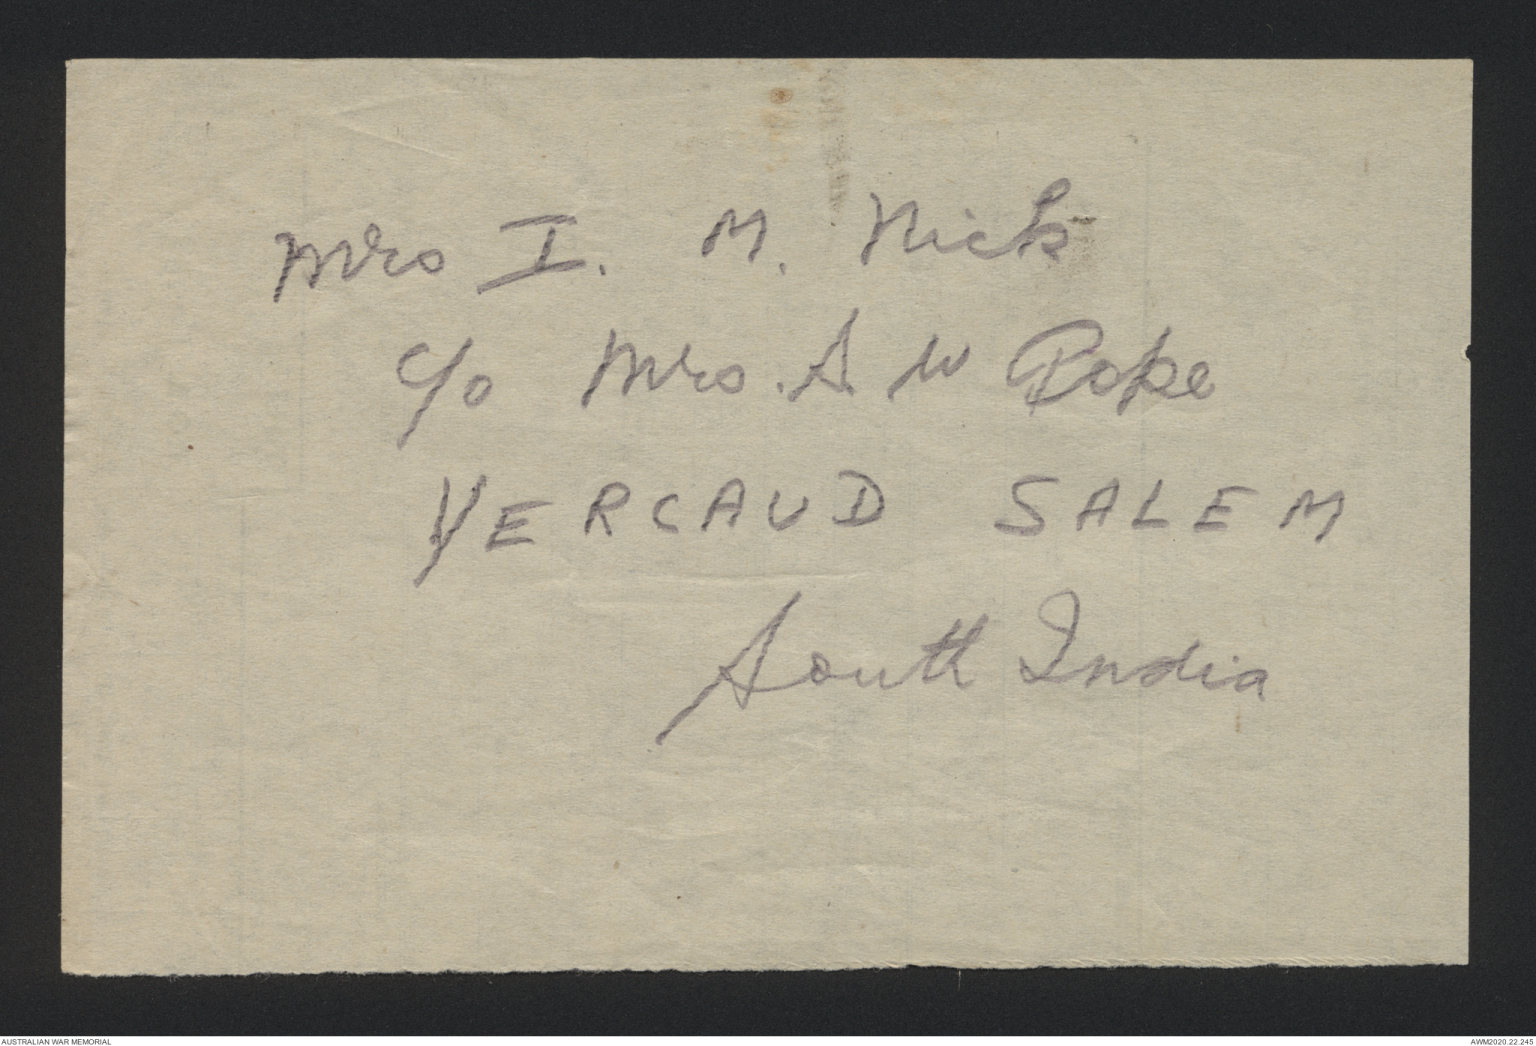 Mrs I. M. Nick
c/o Mrs. A W Pope
YERCAUD SALEM
South India
AUSTRALIAN WAR MEMORIAL
AWM2020.22.245